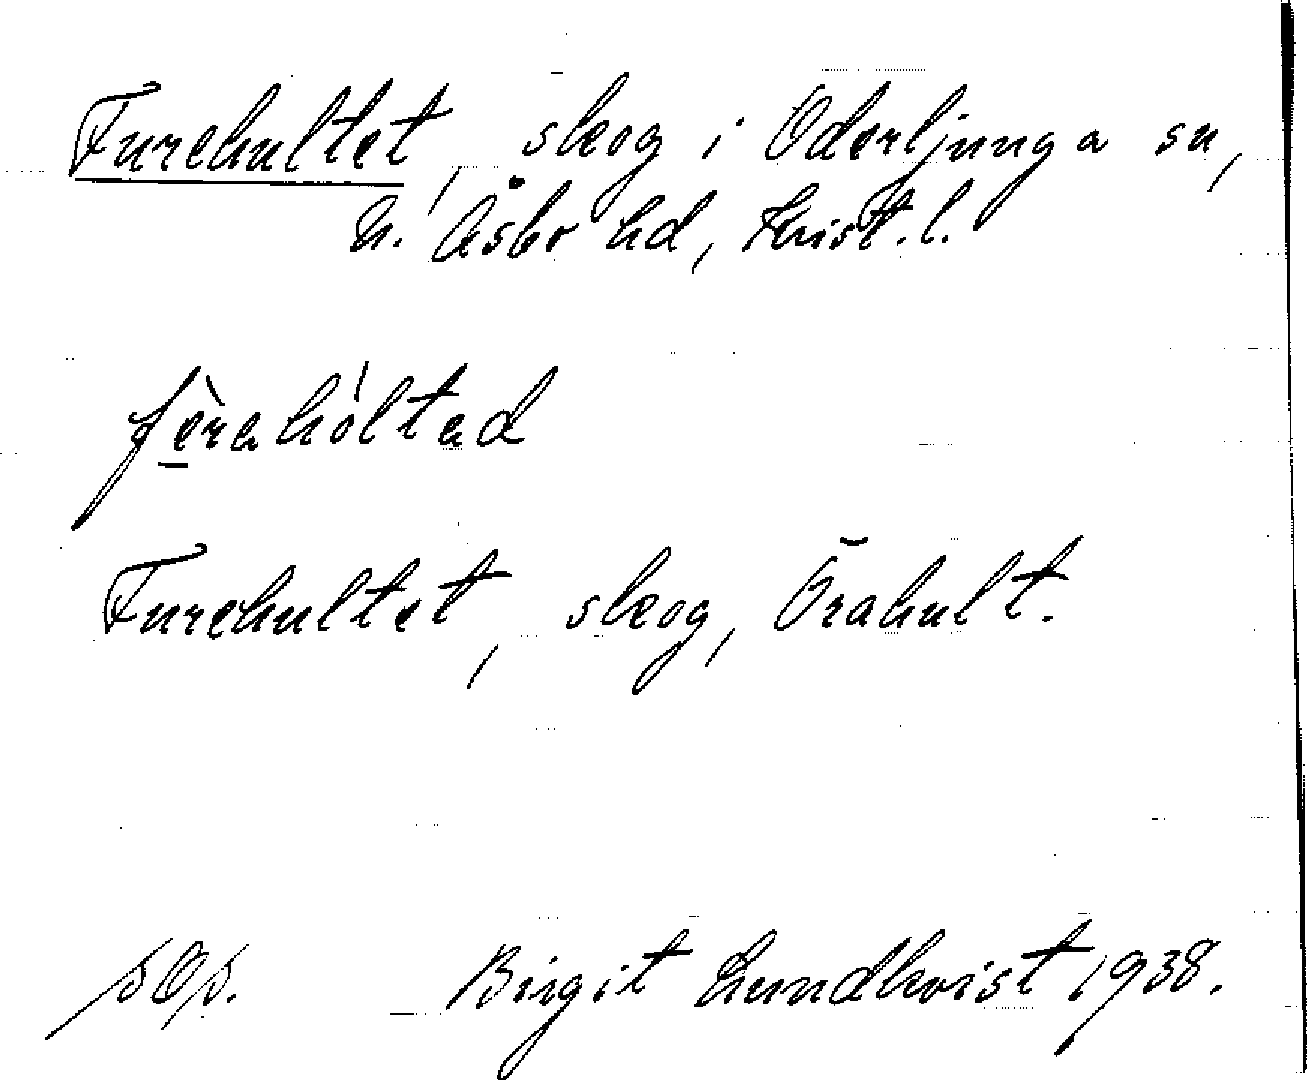 Furehultet, skog i Oderljunga sn,
N. Åsbo hd, Krist. l.
Furehultet, skog, Örahult.
Birgit Lundkvist 1938.